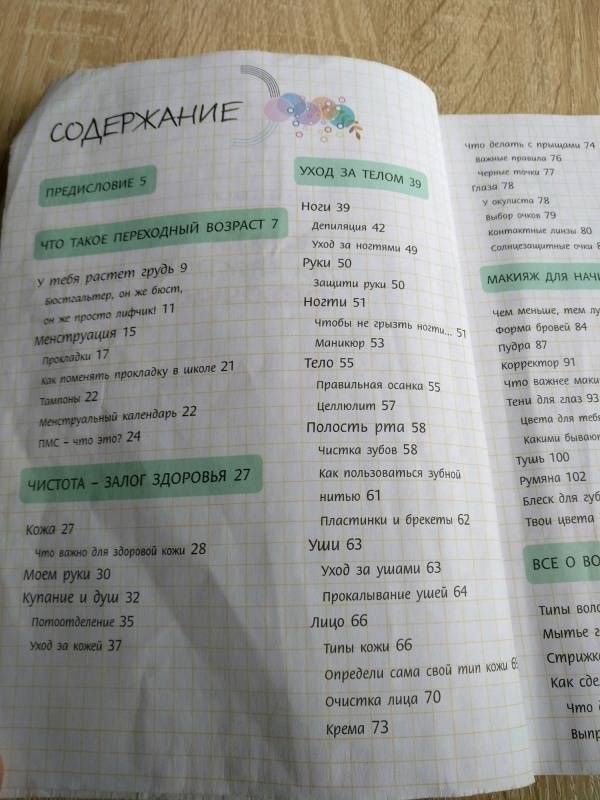 СОДЕРЖАНИЕ
ПРЕДИСЛОВИЕ 5
ЧТО ТАКОЕ ПЕРЕХОДНЫЙ ВОЗРАСТ 7
У тебя растет грудь 9
Бюстгальтер, он же бюст,
он же просто лифчик! 11
Менструация 15
Прокладки 17
Как поменять прокладку в школе 21
Тампоны 22
Менструальный календарь 22
ПМС – что это? 24
ЧИСТОТА – ЗАЛОГ ЗДОРОВЬЯ 27
Кожа 27
Что важно для здоровой кожи 28
Моем руки 30
Купание и душ 32
Потоотделение 35
Уход за кожей 37
УХОД ЗА ТЕЛОМ 39
Ноги 39
Депиляция 42
Уход за ногтями 49
Руки 50
Защити руки 50
Ногти 51
Чтобы не грызть ногти... 51
Маникюр 53
Тело 55
Правильная осанка 55
Целлюлит 57
Полость рта 58
Чистка зубов 58
Как пользоваться зубной
нитью 61
Пластинки и брекеты 62
Уши 63
Уход за ушами 63
Прокалывание ушей 64
Лицо 66
Типы кожи 66
Определи сама свой тип кожи
Очистка лица 70
Крема 73
Что делать с прыщами 74
Важные правила 76
Черные точки 77
Глаза 78
У окулиста 78
Выбор очков 79
Контактные линзы 80
Солнцезащитные очки
МАКИЯЖ ДЛЯ
Чем меньше, тем
Форма бровей 84
Пудра 87
Корректор 91
Что важнее
Тени для глаз 93
Цвета для
Какими
Тушь 100
Румяна 102
Блеск для
Твои цвета
ВСЕ О
Типы
Мытье
Как
Что